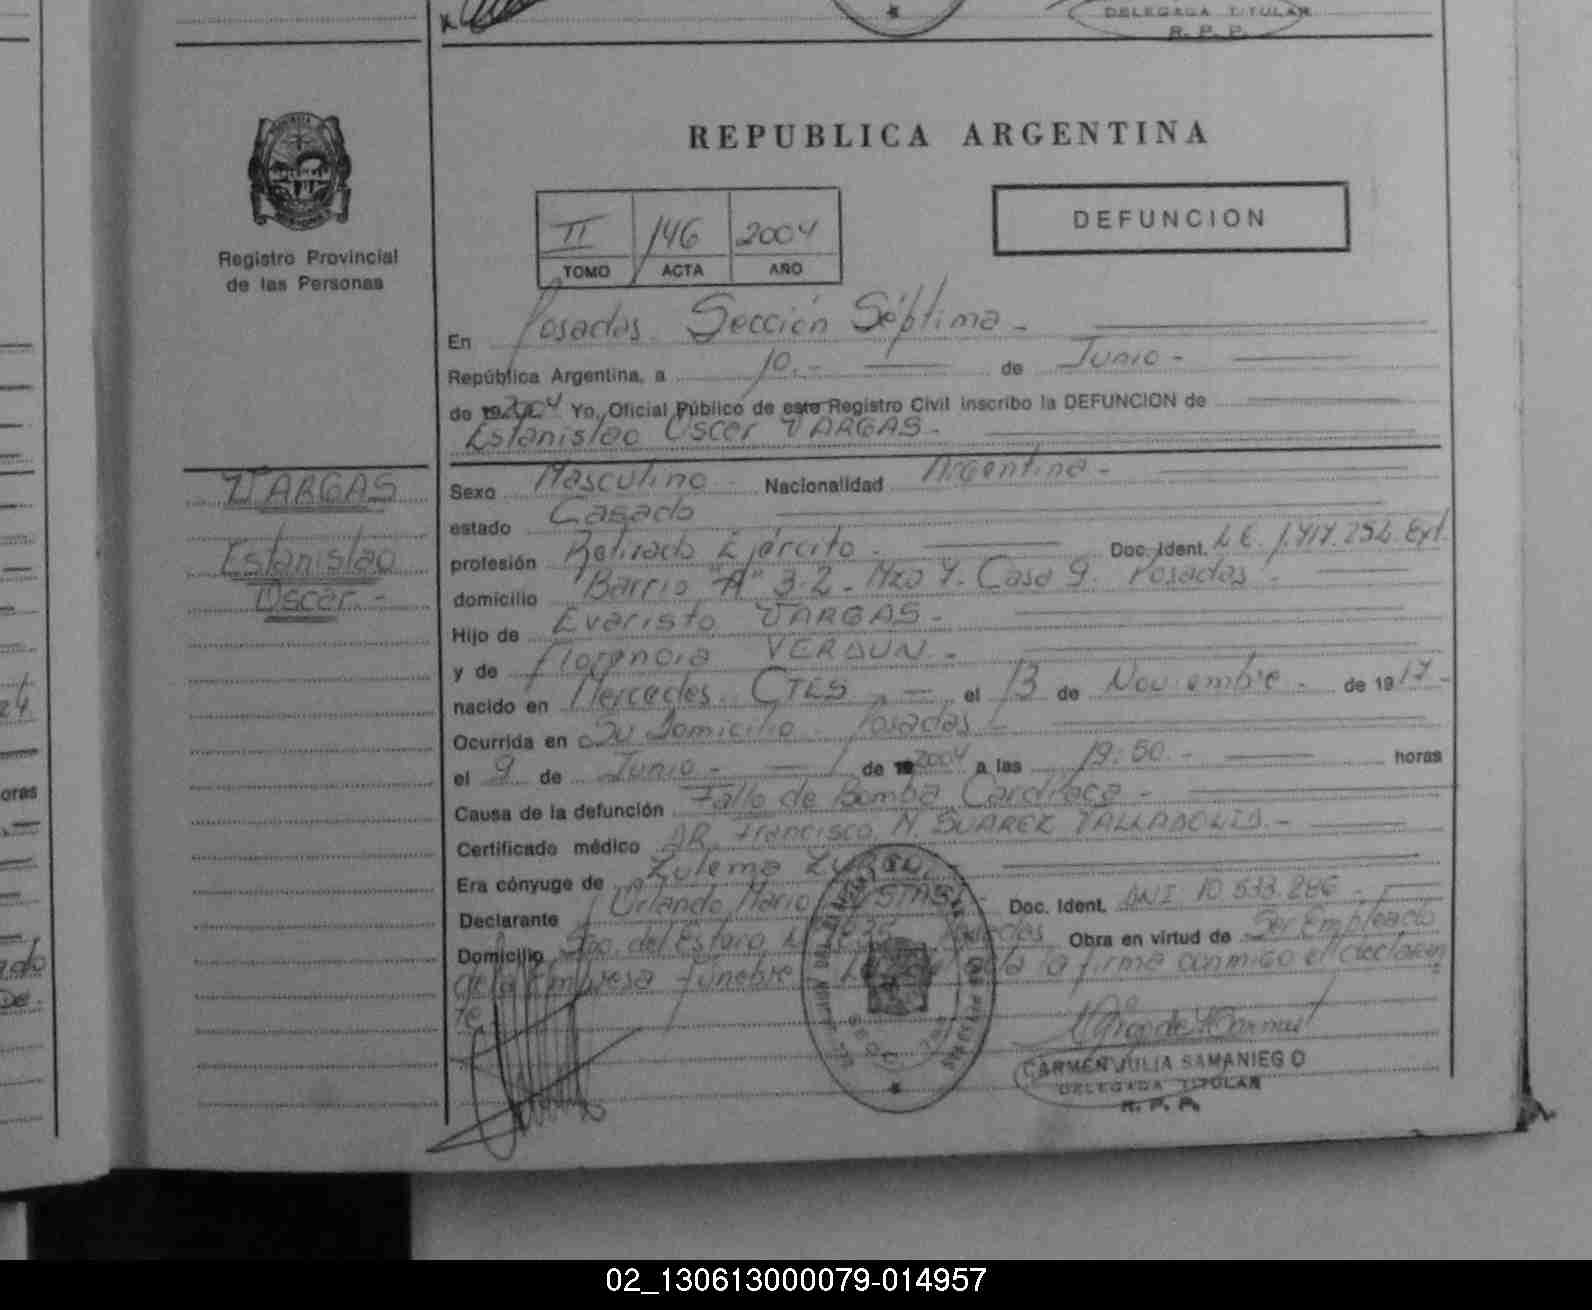 DELEGADA TITULAR
R. P. P.
Registro Provincial
de las Personas
VARGAS
Estanislao
Oscar -
REPUBLICA ARGENTINA
DEFUNCION
II 146 2004
TOMO ACTA AÑO
En Posadas. Sección Séptima -
República Argentina, a 10.- de Junio -
de 19 2004 Yo, Oficial Público de este Registro Civil inscribo la DEFUNCION de
Estanislao Oscar VARGAS -
Sexo Masculino - Nacionalidad Argentina -
estado Casado
profesión Retirado Ejército - Doc. Ident. L.E. Ext.
domicilio Barrio "A" 3-2 - Mza Y. Casa 9. Posadas -
Hijo de Evaristo VARGAS -
y de Florencia VERDUN -
nacido en Mercedes. CTES - el 13 de Noviembre - de 19 17 -
Ocurrida en Su Domicilio - Posadas
el 9 de Junio - de 19 2004 a las 19:50.- horas
Causa de la defunción Fallo de Bomba Cardíaca -
Certificado médico DR. Francisco. N. SUAREZ VALLADOLID. -
Era cónyuge de Zulema
Declarante Orlando Mario Doc. Ident. DNI 10.533.286 -
Domicilio Sgo. del Estero Posadas Obra en virtud de Ser Empleado
de la Empresa fúnebre la firma conmigo el declaran
te
CARMEN JULIA SAMANIEGO
DELEGADA TITULAR
R. P. P.
02_130613000079-014957